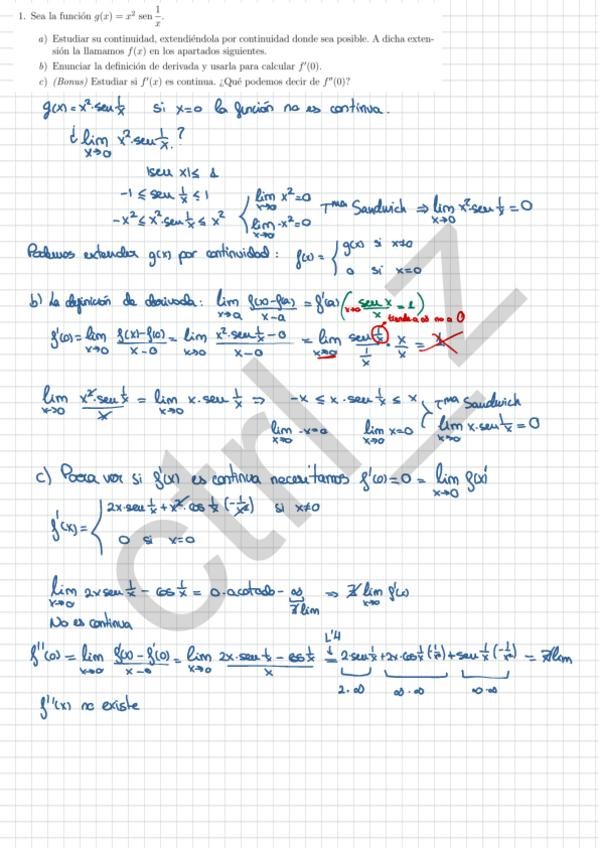 1. Sea la función g(x) = x² sen 1/x.
a) Estudiar su continuidad, extendiéndola por continuidad donde sea posible. A dicha exten-
sión la llamamos f(x) en los apartados siguientes.
b) Enunciar la definición de derivada y usarla para calcular f'(0).
c) (Bonus) Estudiar si f'(x) es continua. ¿Qué podemos decir de f''(0)?
g(x) = x²·sen 1/x si x=0 la función no es continua.
¿ lim x→0 x²·sen 1/x ?
|sen x| ≤ 1
-1 ≤ sen 1/x ≤ 1 { lim x→0 x²=0
-x² ≤ x²·sen 1/x ≤ x² lim x→0 -x²=0 Tma Sandwich ⇒ lim x→0 x²·sen 1/x = 0
Podemos extender g(x) por continuidad: f(x) = { g(x) si x≠0
0 si x=0
b) La definición de derivada: lim x→a f(x)-f(a) / x-a = f'(a) ( x→0 sen x / x = 1 )
tiende a ∞ no a 0
f'(0) = lim x→0 f(x)-f(0) / x-0 = lim x→0 x²·sen 1/x - 0 / x-0 = lim x→0 sen 1/x / 1/x · x/x = 1
lim x→0 x²·sen 1/x / x = lim x→0 x·sen 1/x ⇒ -x ≤ x·sen 1/x ≤ x Tma Sandwich
lim x→0 -x=0 lim x→0 x=0 lim x→0 x·sen 1/x = 0
c) Para ver si f'(x) es continua necesitamos f'(0)=0 = lim x→0 f(x)'
f'(x) = { 2x·sen 1/x + x²·cos 1/x (-1/x²) si x≠0
0 si x=0
lim x→0 2x sen 1/x - cos 1/x = 0·acotado - ∞ ⇒ ∄ lim x→0 f'(x)
∄ lim
No es continua
f''(0) = lim x→0 f'(x) - f'(0) / x-0 = lim x→0 2x·sen 1/x - cos 1/x / x = L'H 2·sen 1/x + 2x·cos 1/x (-1/x²) + sen 1/x (-1/x²) = ∄ lim
2·∞ ∞·∞ ∞·∞
f''(x) no existe
ctrl_z